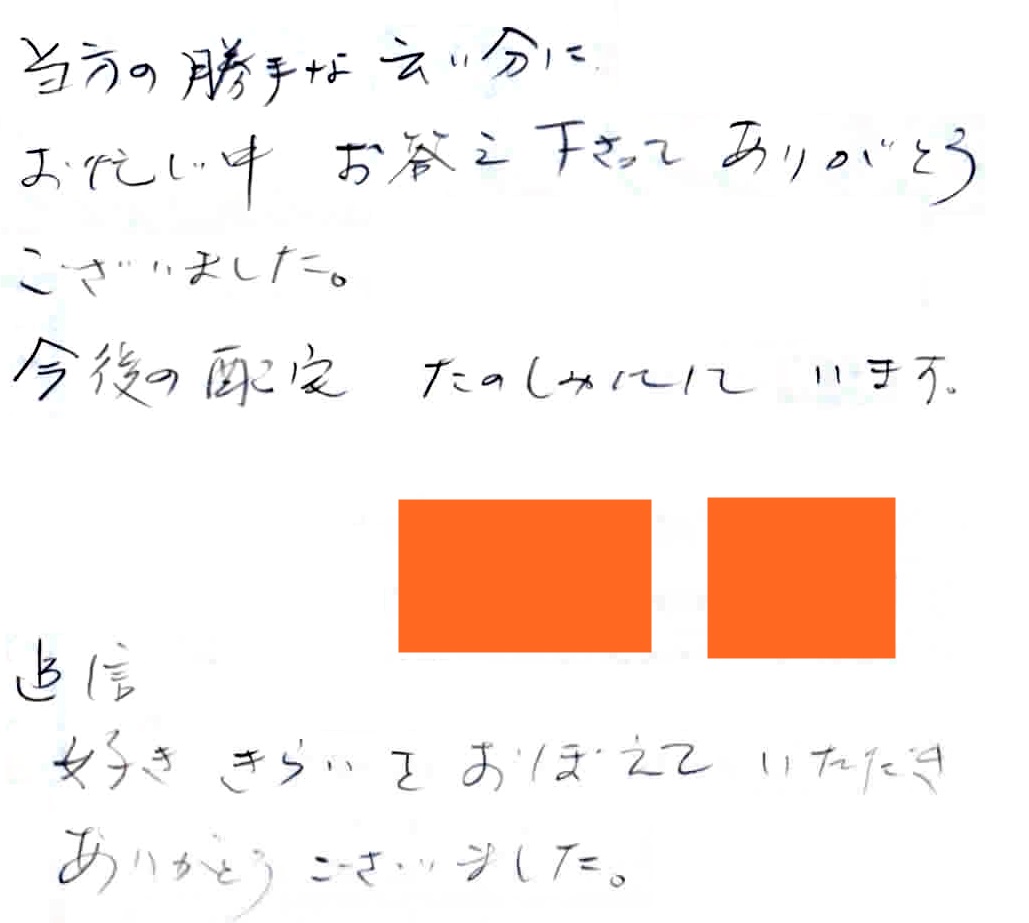 当方の勝手な云い分に
お忙しい中 お答え下さって ありがとう
ございました。
今後の配定 たのしみにして います。
追信
好き きらいを おぼえて いただき
ありがとう ございました。